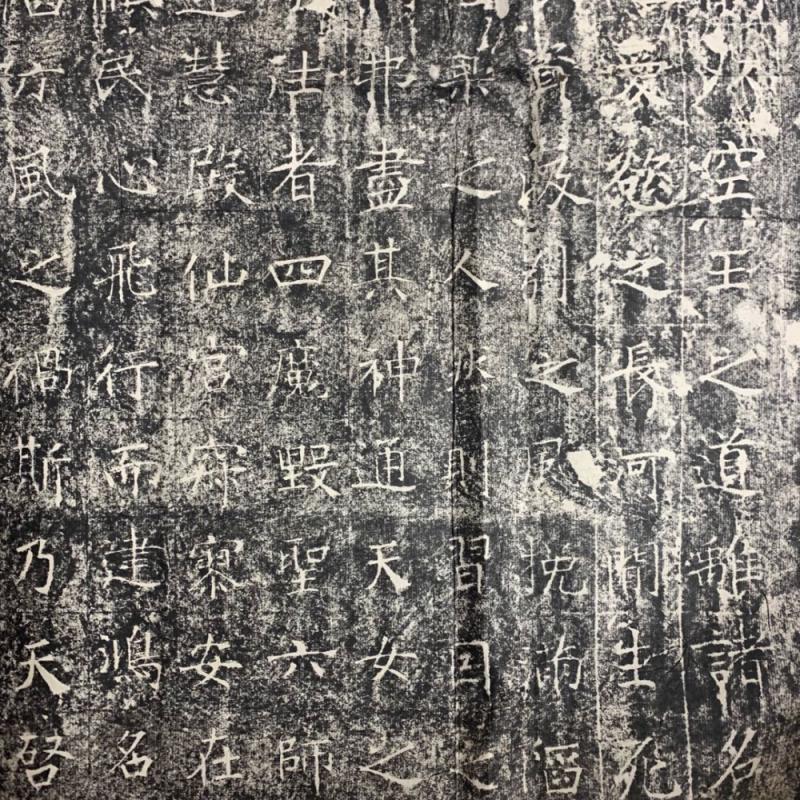 空王之道離諸名
愛慾之長河開生死
汲引之風挽滿
果之人則習因之
弗盡其神通天女之
法者四魔毀聖六師
慧殿仙宮寂寥安在
民心飛行而建鴻名
防風之禍斯乃天啓